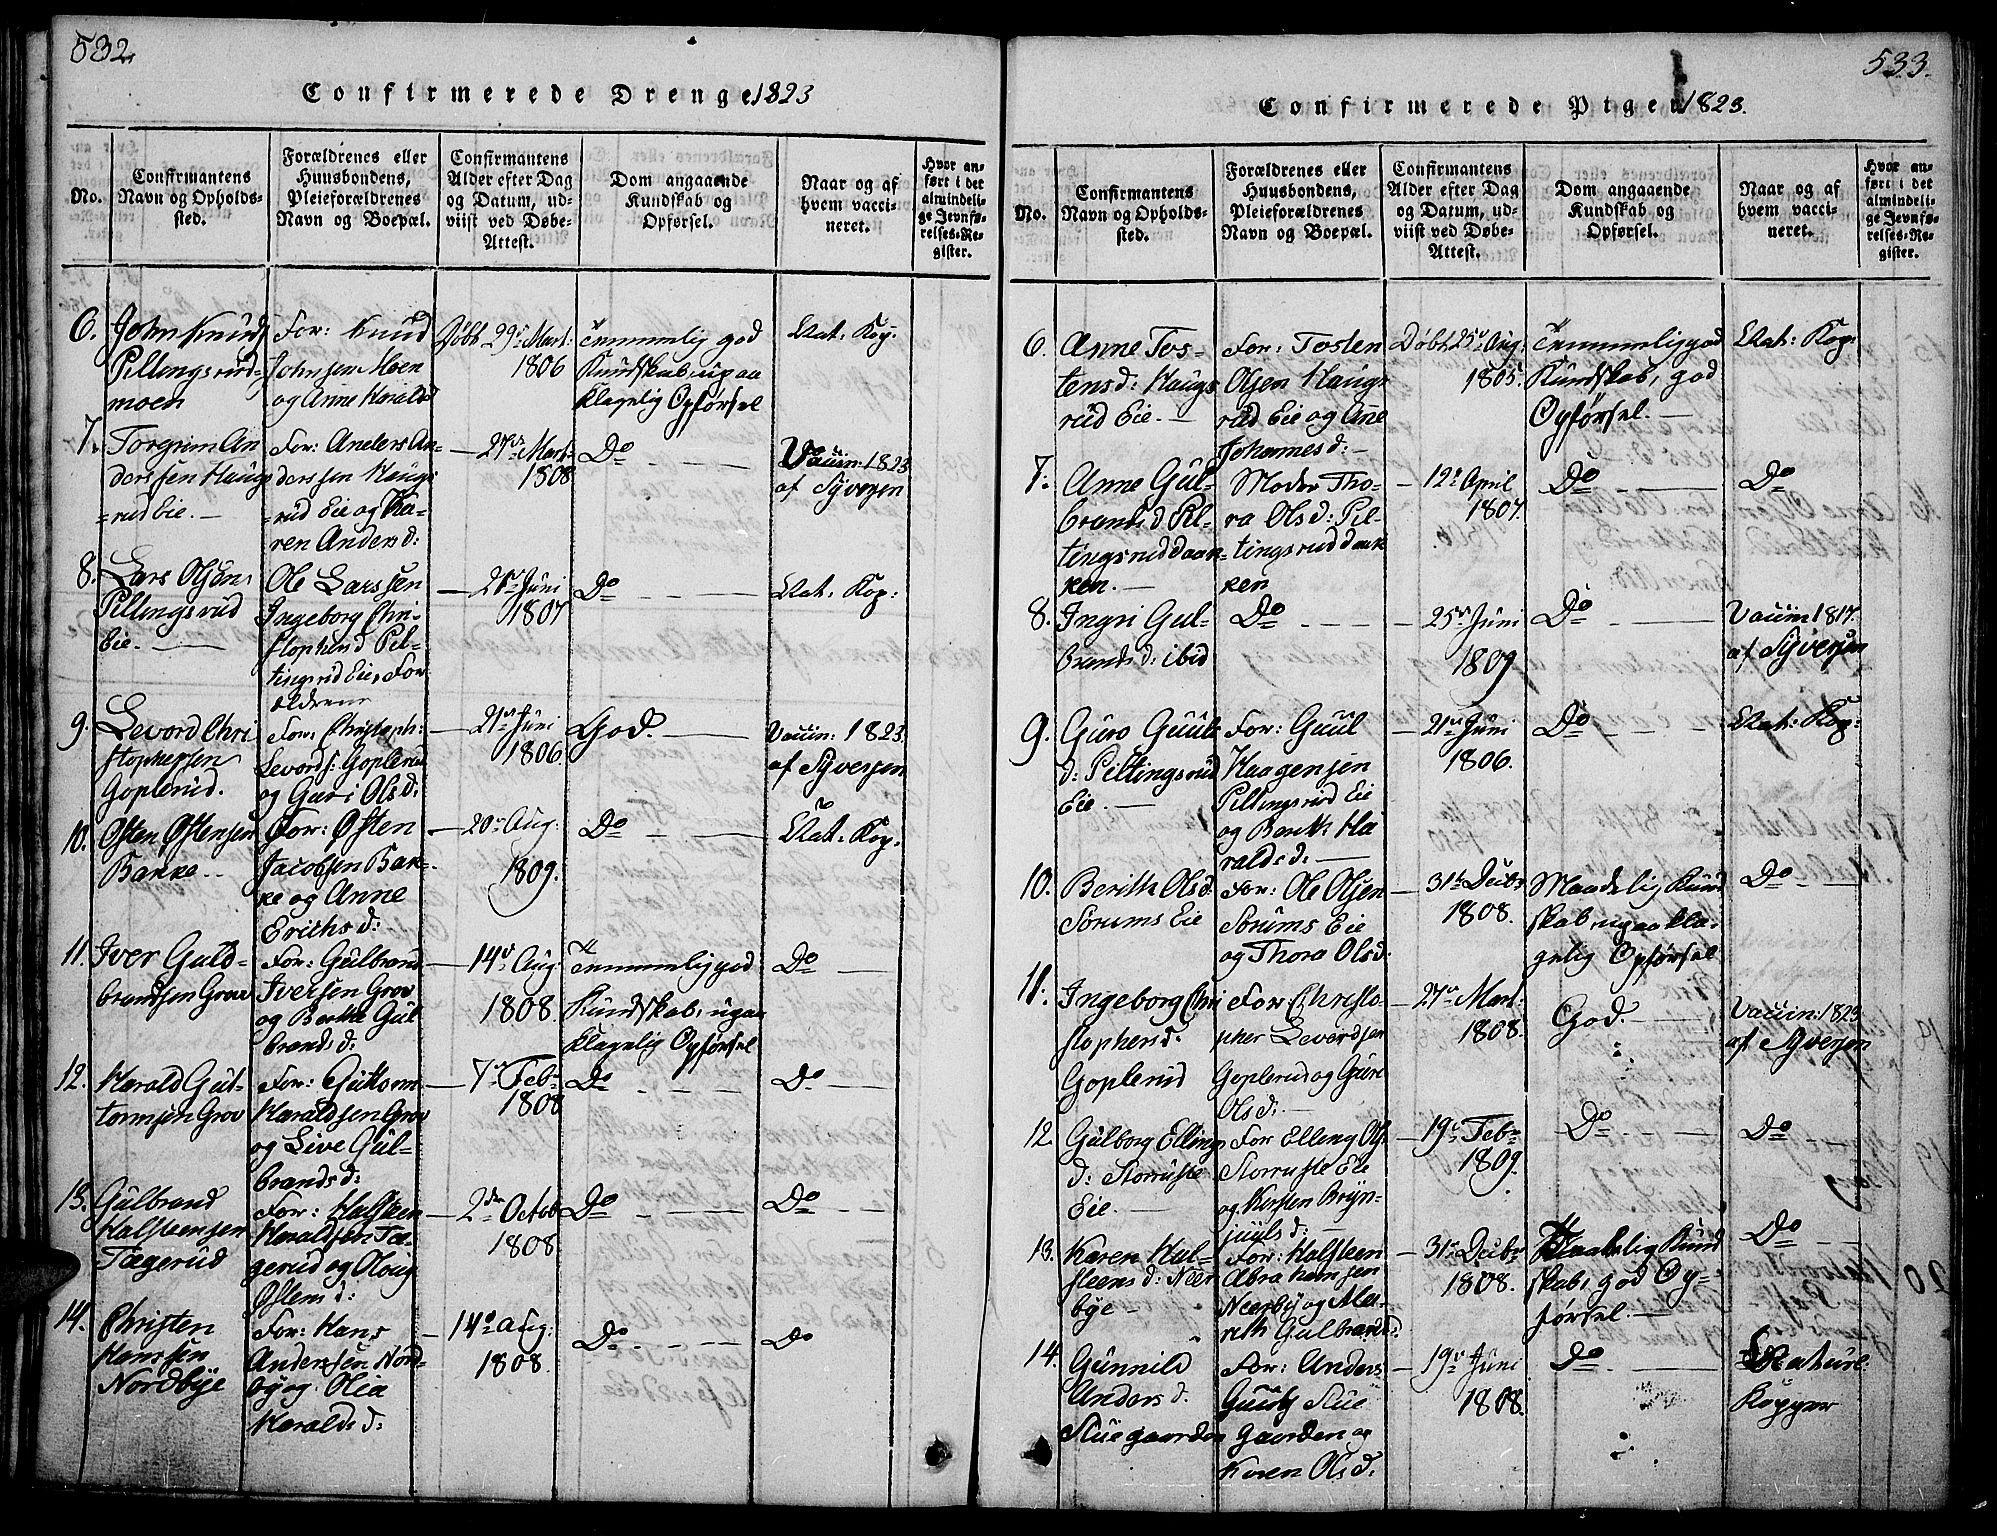 532.
Confirmerede Drenge 1823
No.
Confirmantens
Navn og Opholds-
sted.
Forældrenes eller
Huusbondens,
Pleieforældrenes
Navn og Boepæl.
Confirmantens
Alder efter Dag
og Datum, ud-
viist ved Døbe-
Attest.
Dom angaaende
Kundskab og
Opførsel.
Naar og af
hvem vacci-
neret.
Hvor an-
ført i det
almindeli-
ge Jevnfø-
relses-Re-
gister.
6.
John Knuds
Piltingsrud-
moen
For: Knud
Johnsen Moen
og Anne Haralds
Døbt 29d Mart:
1806
Temmelig god
Kundskab, upaa
klagelig Opførsel
Nat: Kop:
7.
Torgrim An
derssen Haugs
=rud Eie. —
For: Anders An-
derssen Haugs
=rud Eie og Ka-
ren Andersd:
— 27de Mart:
1808
Do — — —
Vaccin: 1823
af Syversen
8.
Lars Olsen
Piltingsrud
Eie. —
Ole Larssen
Ingeborg Chri-
stophersd Pil-
tingsrud Eie, For
ældrene
— 21de Juni
1807
Do — — —
Nat: Kop:
9.
Levord Chri
stophersen
Goplerud.
For: Christoph:
Levords: Goplerud
og Guri Olsd:
— 21de Juni
1806
God. —
Vaccin: 1823
af Syversen
10.
Østen Østensen
Bakke. .
For: Østen
Jacobsen Bak-
ke og Anne
Erichsd:
— 20de Aug:
1809.
Do — — —
Nat: Kop:
11.
Iver Guld-
brandsen Grov
For: Gulbrand
Iversen Grov
og Berthe Gul
brandsd:
— 14d Aug
1808.
Temmelig god
Kundskab, upaa
klagelig Opførsel
Do —
12.
Harald Gut-
tormsen Grov
For: Guttorm
Haraldsen Grov
og Live Gul-
brandsd:
— 7de Febr
1808
Do — — —
Do —
13.
Gulbrand
Halsteensen
Tægerud
For: Halsteen
Haraldsen Tæ-
gerud og Oloug
Østensd:
— 2den Octob
1808.
Do — — —
Do
14.
Christen
Hanssen
Nordbye
For: Hans
Anderssen Nord-
by og Olea
Haraldsd:
— 14de Aug:
1808.
Do — — —
Do
533.
Confirmerede Piger 1823.
No.
Confirmantens
Navn og Opholds-
sted.
Forældrenes eller
Huusbondens,
Pleieforældrenes
Navn og Boepæl.
Confirmantens
Alder efter Dag
og Datum, ud-
viist ved Døbe-
Attest.
Dom angaaende
Kundskab og
Opførsel.
Naar og af
hvem vacci-
neret.
Hvor an-
ført i det
almindeli-
ge Jevnfø-
relses-Re-
gister.
6.
Anne Tos-
tensd: Haugs
rud Eie. —
For: Tosten
Olsen Haugs
rud Eie og Ane
Johannesd: —
Døbt 25d Aug:
1805.
Temmelig god
Kundskab, god
Opførsel. —
Nat: Kop:
7.
Anne Gul-
brandsd Pil-
tingsruddaan
ken. —
Moder Tho-
ra Olsd: Pil-
tingsruddank
ken
— 12te April
1807.
Do — — —
Do
8.
Ingri Gul-
brandsd: ibid
Do — — —
— 25de Juni
1809
Do — — —
Vaccin: 1817.
af Syversen
9.
Guro Guuls
d: Piltingsrud
Eie. —
For: Guul
Haagensen
Piltingsrud Eie
og Berith Ha
raldsd: —
— 21de Juni
1806.
Do — — —
Nat: Kop:
10.
Berith Olsd
Sørums Eie
For: Ole Olsen
Sørums Eie
og Thora Olsd:
— 31te Decbr
1808.
Maadelig Kund
skab, upaakla-
gelig Opførsel
Do — —
11.
Ingeborg Chri
stophersd:
Goplerud
For Christo-
pher Levordsen
Goplerud og Guri
Olsd: —
— 27de Mart:
1808.
God. —
Vaccin: 1823
af Syversen
12.
Gulborg Ellings
d: Storruste
Eie. —
For Elleng Ols
Storruste Eie
og Kersten Bryn-
juulsd: —
— 19de Febr
1809.
Do — — —
Do — —
13.
Karen Hal-
steensd: Neer
bye —
For: Halsteen
Abrahamsen
Neerby og Mar-
rith Gulbrandsd:
— 31te Decbr
1808.
Maadelig Kund
skab, god Op-
førsel. —
Do — —
14.
Gunnild
Andersd:
Stuegaarden
For: Anders
Stue
gaarden og
Karen Olsd:
— 19de Juni
1808.
Do — —
Naturl:
Kopper